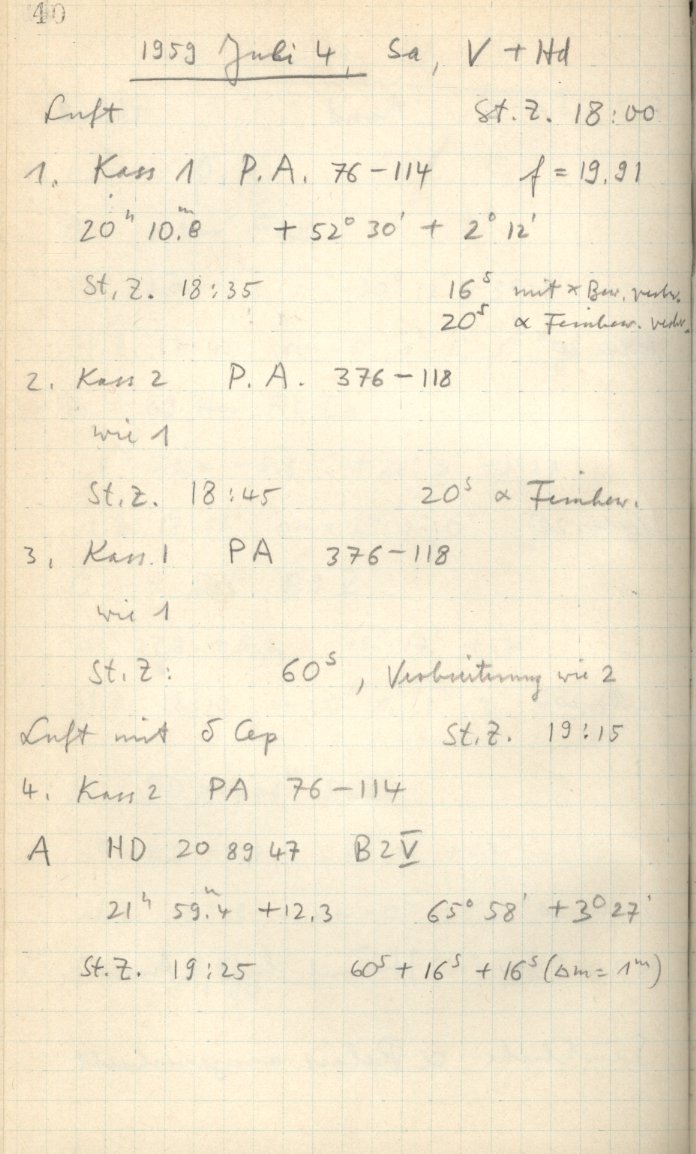 40
1959 Juli 4, Sa, V + Hd
Luft St. Z. 18:00
1. Kass 1 P.A. 76-114 f = 19.91
20h 10.m8 + 52° 30' + 2° 12'
St. Z. 18:35 16s mit α Bew. verbr.
20s α Feinbew. verbr.
2. Kass 2 P.A. 376-118
wie 1
St. Z. 18:45 20s α Feinbew.
3. Kass. 1 PA 376-118
wie 1
St. Z: 60s, Verbreiterung wie 2
Luft mit δ Cep St. Z. 19:15
4. Kass 2 PA 76-114
A HD 20 89 47 B2V
21h 59.m4 +12.3 65° 58' +3° 27'
St. Z. 19:25 60s + 16s + 16s (Δm = 1m)